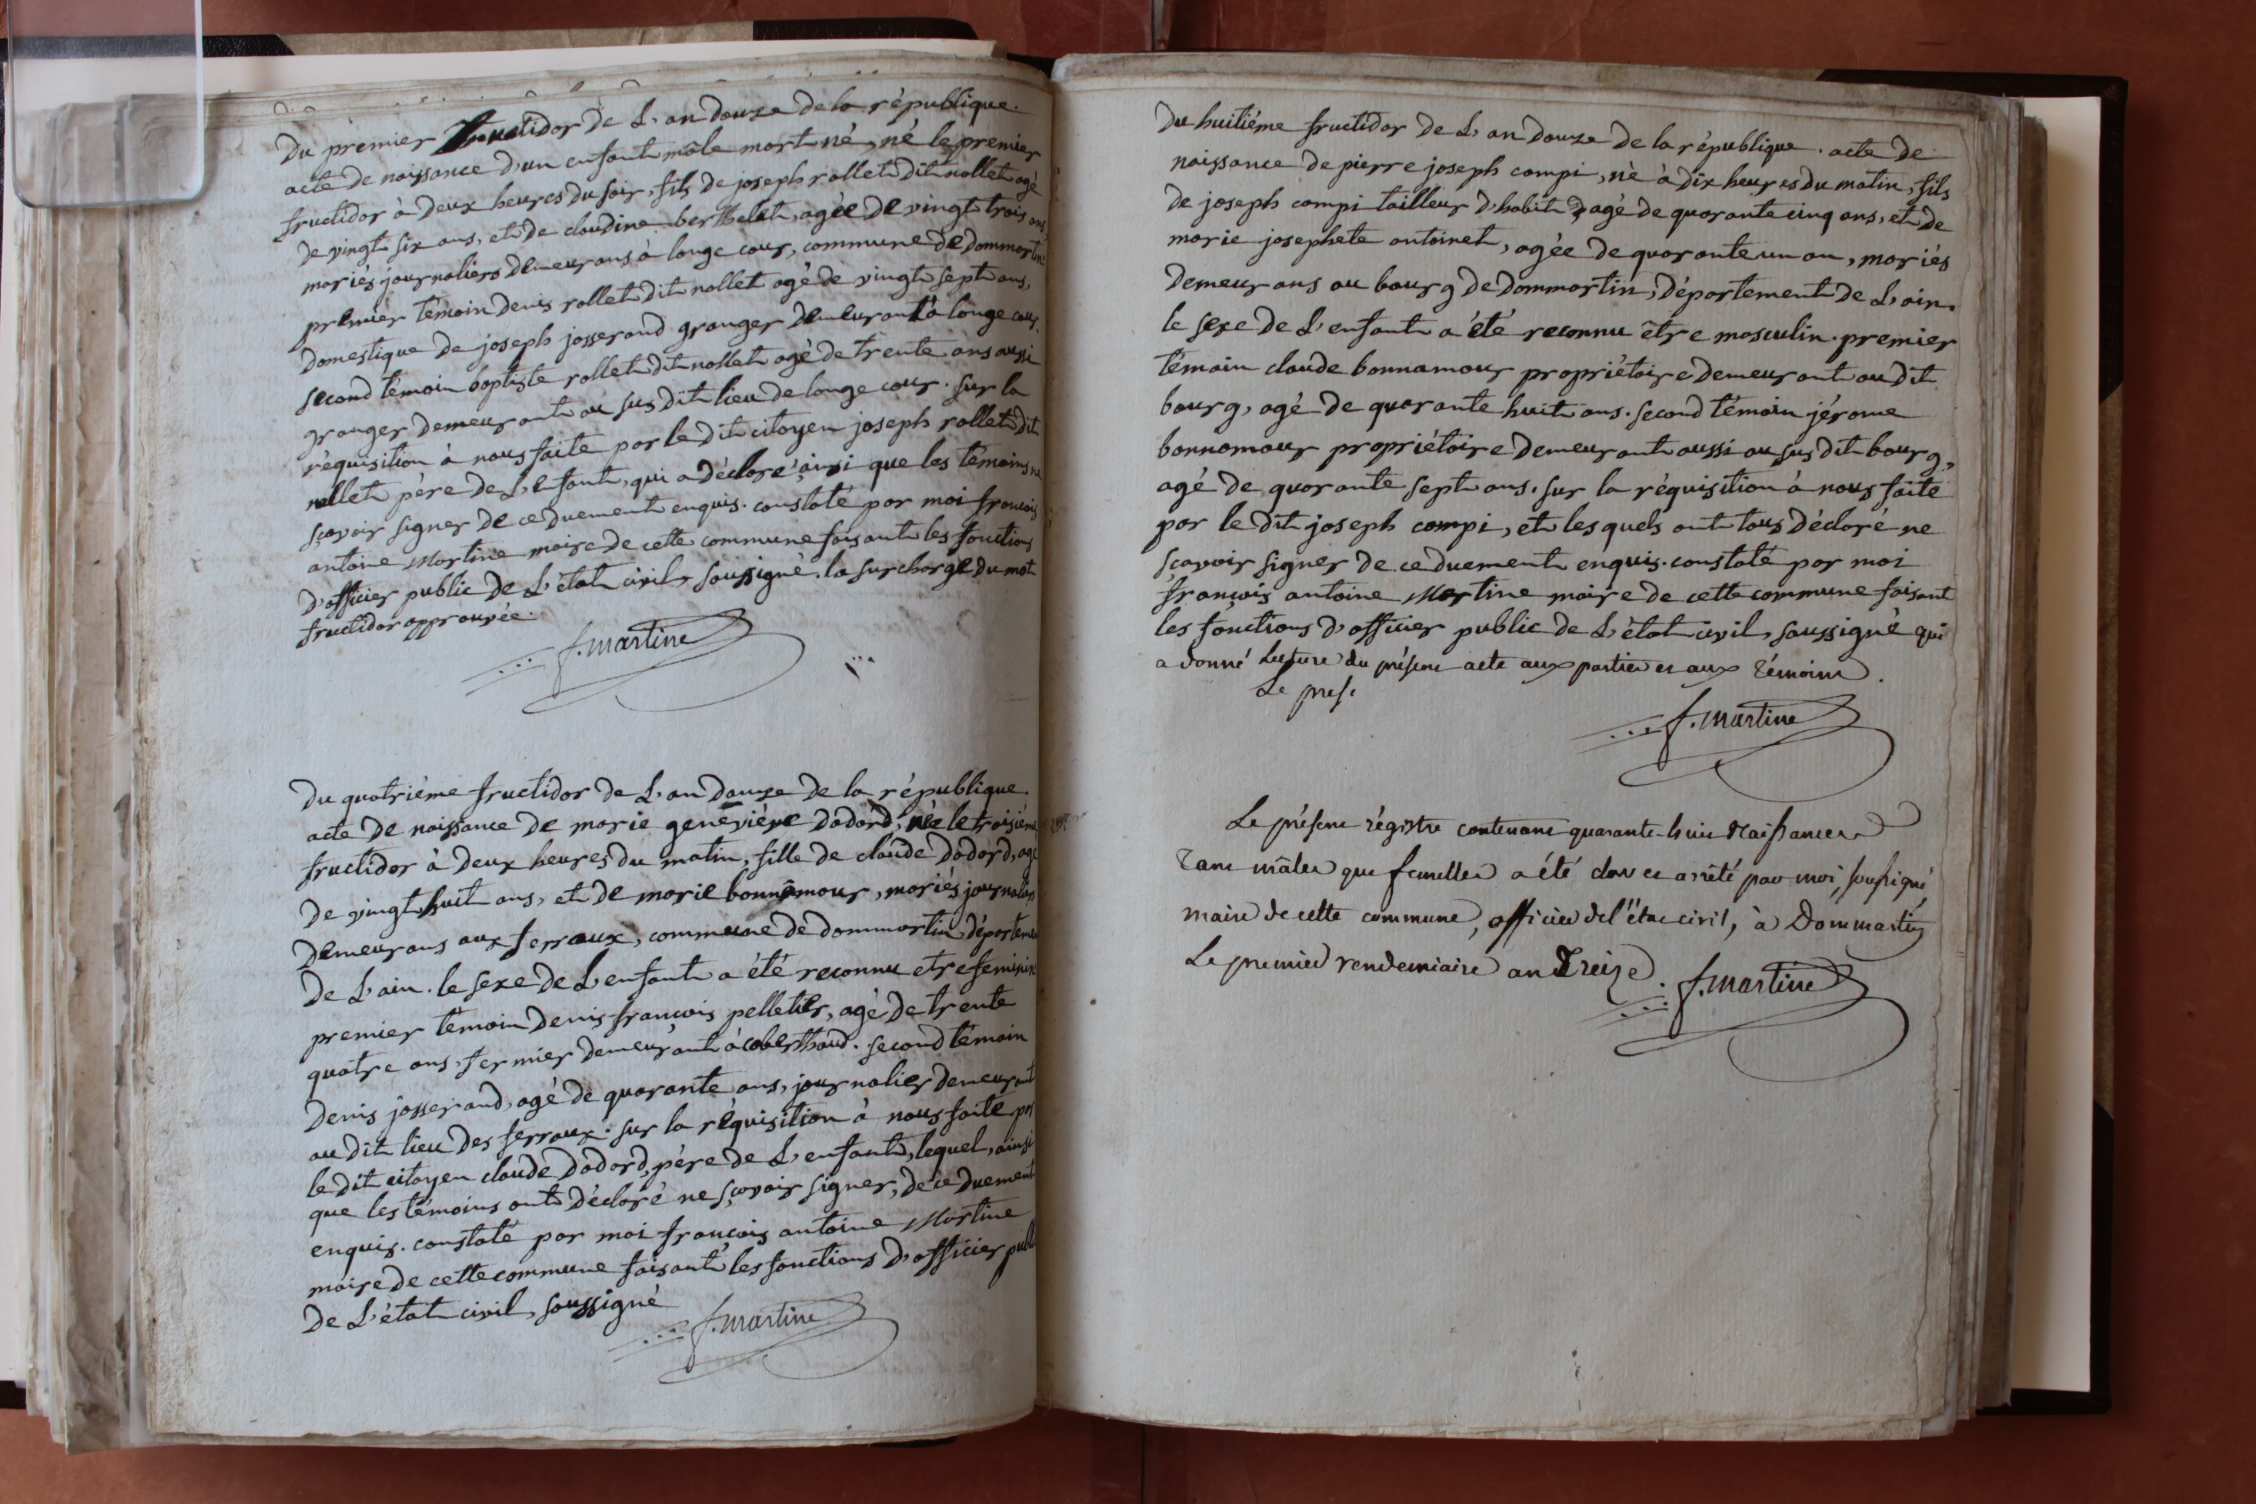 Du prémier fructidor de L'an douze de la république.
acte de naissance d'un enfant mâle mort né, né le premier
fructidor à deux heures du soir, fils de joseph rollet dit nollet agé
de vingt six ans, et de claudine berthelet, agée de vingt trois ans
mariés journaliers demeurans à longe cour, commune de dommartin
premier témoin denis rollet dit nollet agé de vingt sept ans,
domestique de joseph josserand granger demeurant à longe cour.
second témoin baptiste rollet dit nollet agé de trente ans aussi
granger demeurant au sus dit lieu de longe cour. sur la
réquisition à nous faite par le dit citoyen joseph rollet dit
nollet père de L'enfant, qui a déclaré, ainsi que les témoins ne
sçavoir signer de ce duement enquis. constaté par moi françois
antoine Martine maire de cette commune faisant les fonctions
d'officier public de L'état civil, soussigné. la surcharge du mot
fructidor approuvée.
f. martine
Du quatriéme fructidor de L'an douze de la république.
acte de naissance de marie geneviéve dodard, née le troisiéme
fructidor à deux heures du matin, fille de claude dodard, agé
de vingt huit ans, et de marie bonnamour, mariés journaliers
demeurans aux ferraux, commune de dommartin département
de L'ain. le sexe de L'enfant a été reconnu etre feminin
premier témoin denis françois pelletier, agé de trente
quatre ans, fermier demeurant à coberthoud. second témoin
denis josserand, agé de quarante ans, journalier demeurant
au dit lieu des ferraux. sur la réquisition à nous faite par
le dit citoyen claude dodard, père de L'enfant, lequel, ainsi
que les témoins ont déclaré ne sçavoir signer, de ce duement
enquis. constaté par moi françois antoine Martine
maire de cette commune faisant les fonctions d'officier public
de L'état civil, soussigné
f. martine
Du huitiéme fructidor de L'an douze de la république. acte de
naissance de pierre joseph compi, né à dix heures du matin, fils
de joseph compi tailleur d'habit agé de quarante cinq ans, et de
marie josephete antoinet, agée de quarante un an, mariés
demeurans au bourg de dommartin, département de L'ain.
le sexe de L'enfant a été reconnu être masculin. premier
témoin claude bonnamour propriétaire demeurant au dit
bourg, agé de quarante huit ans. second témoin jérome
bonnamour propriétaire demeurant aussi au sus dit bourg,
agé de quarante sept ans. sur la réquisition à nous faite
par le dit joseph compi, et les quels ont tous déclaré ne
sçavoir signer de ce duement enquis. constaté par moi
françois antoine Martine maire de cette commune faisant
les fonctions d'officier public de L'état civil, soussigné qui
a donné Lecture du présent acte aux parties et aux témoins.
Le prese
f. martine
Le présent régistre contenant quarante-huit Naissances
tant mâles que femelles a été clos et arrêté par moi, soussigné,
maire de cette commune, officier de l'état civil, à Dommartin
Le premier vendemiaire an treize.
f. martine